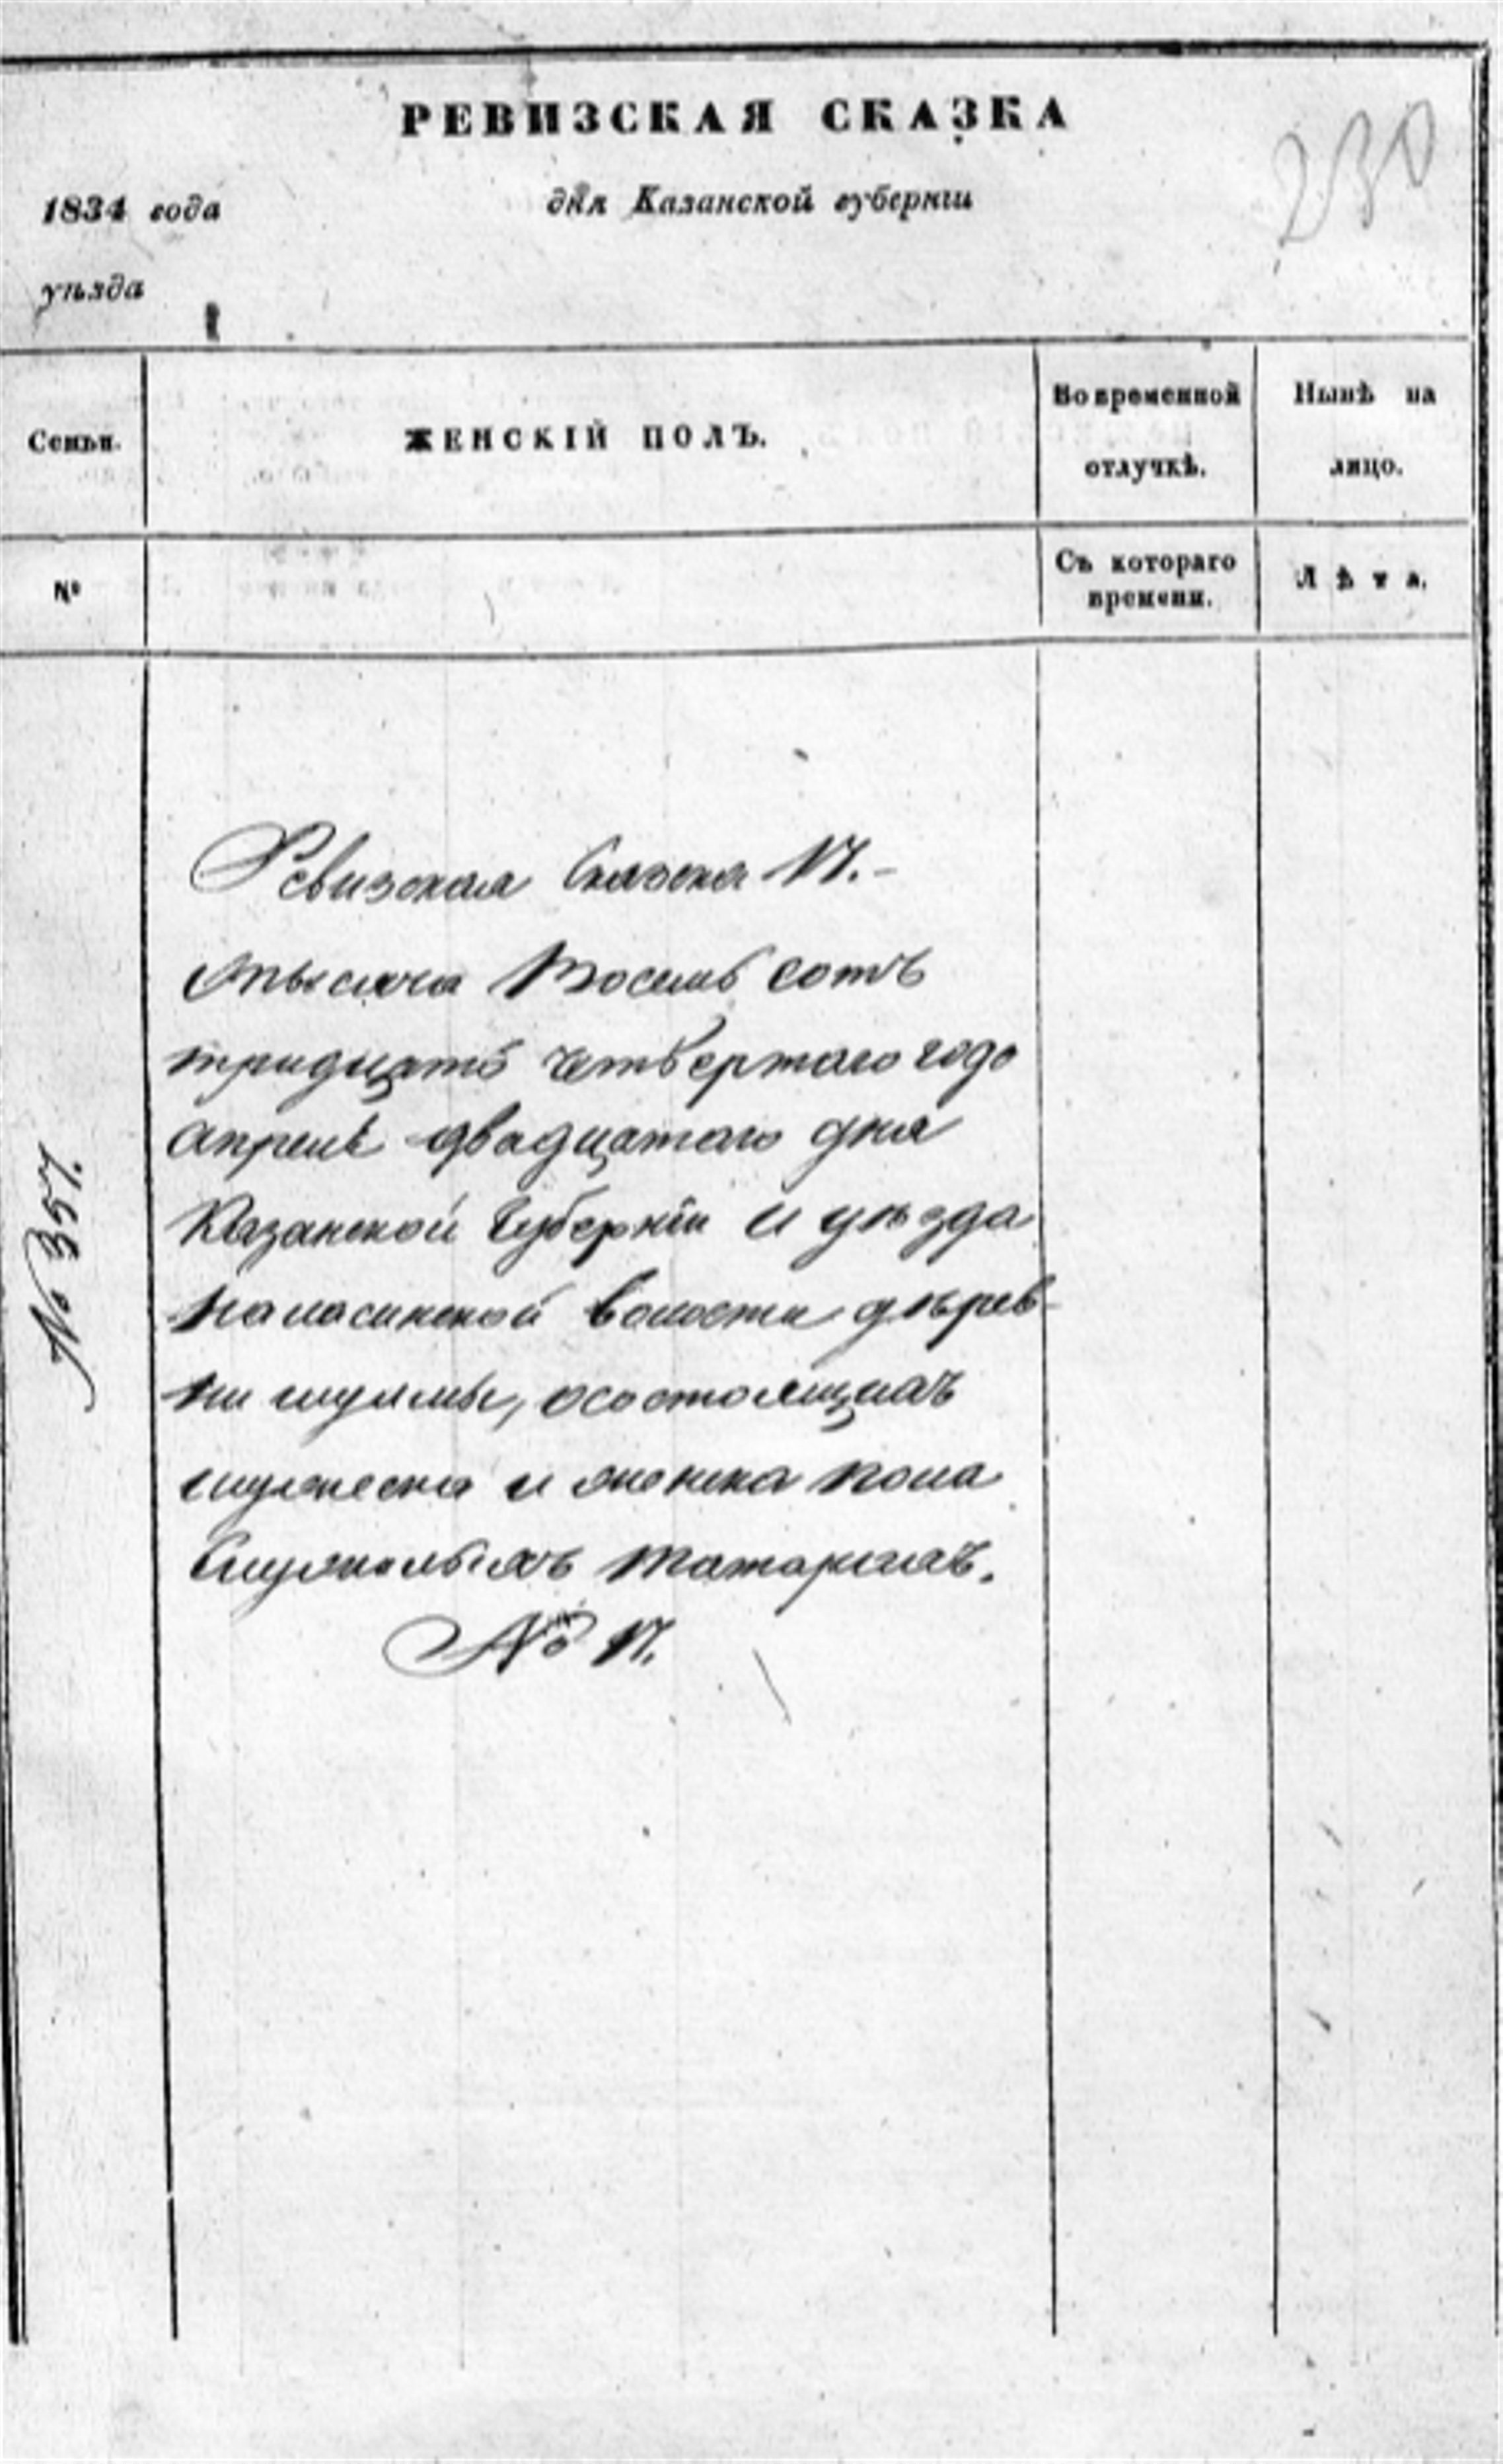 РЕВИЗСКАЯ СКАЗКА
230
1834 года
для Казанской губернiи
уѣзда
Семьи.
ЖЕНСКIЙ ПОЛЪ.
Во временной
отлучкѣ.
Нынѣ на
лицо.
№
Съ котораго
времени.
Лѣта.
Ревизская Сказка 17.-
тысяча Восемь сотъ
тридцать четвертаго года
апреля двадцатаго дня
Казанской Губернiи и уѣзда
волости дѣрев-
ни о состоящихъ
мужеска и женска пола
Служилыхъ татарахъ.
№ 17.
№ 357.